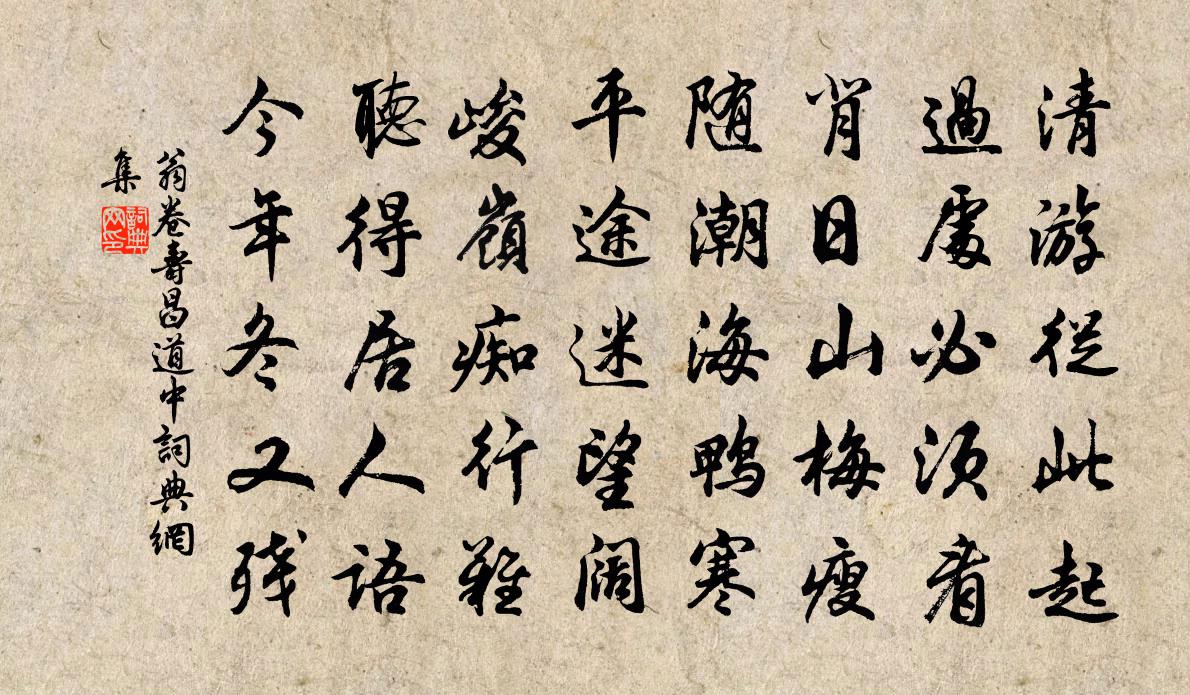 清游從此起
過處必須看
背日山梅瘦
随潮海鴨寒
平途迷望阔
峻嶺痴行難
聽得居人語
今年冬又残
翁卷壽昌道中詞典網
集
詞典
网印